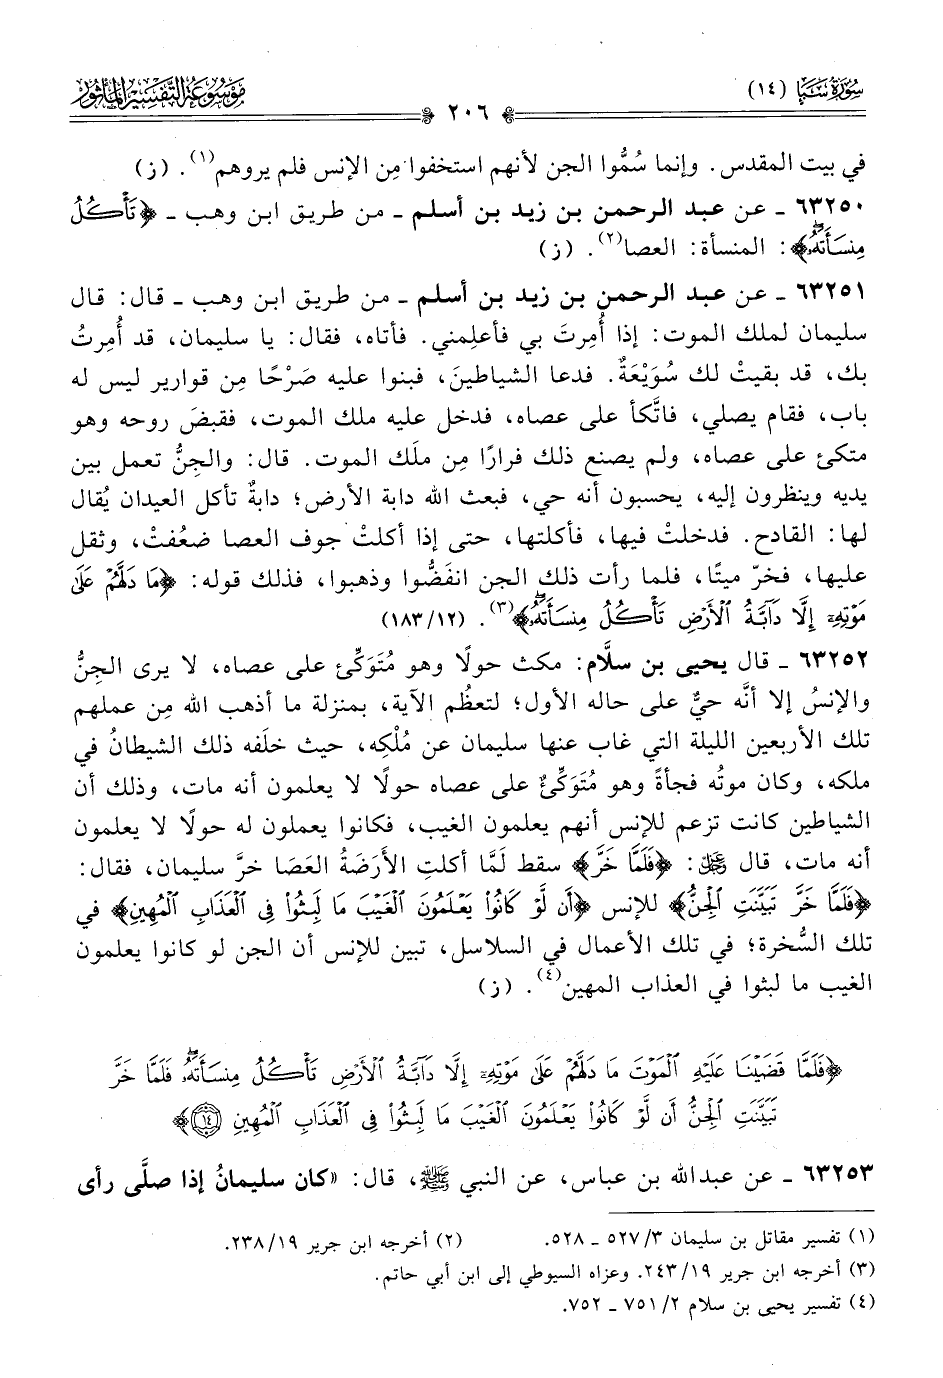 سُورَةُ سَبَإٍ (١٤)
٢٠٦
مَوْسُوعَةُ التَّفْسِيرِ المَأْثُورِ
في بيت المقدس. وإنما سُمُّوا الجن لأنهم استخفوا مِن الإنس فلم يروهم(١). (ز)
٦٣٢٥٠ ـ عن عبد الرحمن بن زيد بن أسلم ـ من طريق ابن وهب ـ ﴿تَأْكُلُ
مِنسَأَتَهُۥۖ﴾: المنسأة: العصا(٢). (ز)
٦٣٢٥١ ـ عن عبد الرحمن بن زيد بن أسلم ـ من طريق ابن وهب ـ قال: قال
سليمان لملك الموت: إذا أُمِرتَ بي فأعلِمني. فأتاه، فقال: يا سليمان، قد أُمِرتُ
بك، قد بقيتْ لك سُوَيْعَةٌ. فدعا الشياطينَ، فبنوا عليه صَرْحًا مِن قوارير ليس له
باب، فقام يصلي، فاتَّكأ على عصاه، فدخل عليه ملك الموت، فقبضَ روحه وهو
متكئ على عصاه، ولم يصنع ذلك فرارًا مِن ملَك الموت. قال: والجِنُّ تعمل بين
يديه وينظرون إليه، يحسبون أنه حي، فبعث الله دابة الأرض؛ دابةٌ تأكل العيدان يُقال
لها: القادح. فدخلتْ فيها، فأكلتها، حتى إذا أكلتْ جوف العصا ضعُفتْ، وثقل
عليها، فخرّ ميتًا، فلما رأت ذلك الجن انفَضُّوا وذهبوا، فذلك قوله: ﴿مَا دَلَّهُمْ عَلَىٰ
مَوْتِهِۦٓ إِلَّا دَآبَّةُ ٱلْأَرْضِ تَأْكُلُ مِنسَأَتَهُۥۖ﴾(٣). (١٨٣/١٢)
٦٣٢٥٢ ـ قال يحيى بن سلَّام: مكث حولًا وهو مُتَوَكِّئ على عصاه، لا يرى الجِنُّ
والإنسُ إلا أنَّه حيٌّ على حاله الأول؛ لتعظُم الآية، بمنزلة ما أذهب الله مِن عملهم
تلك الأربعين الليلة التي غاب عنها سليمان عن مُلْكِه، حيث خلَفه ذلك الشيطانُ في
ملكه، وكان موتُه فجأةً وهو مُتَوَكِّئٌ على عصاه حولًا لا يعلمون أنه مات، وذلك أن
الشياطين كانت تزعم للإنس أنهم يعلمون الغيب، فكانوا يعملون له حولًا لا يعلمون
أنه مات، قال ﷻ: ﴿فَلَمَّا خَرَّ﴾ سقط لَمَّا أكلتِ الأَرَضَةُ العَصَا خرَّ سليمان، فقال:
﴿فَلَمَّا خَرَّ تَبَيَّنَتِ ٱلْجِنُّ﴾ للإنس ﴿أَن لَّوْ كَانُوا۟ يَعْلَمُونَ ٱلْغَيْبَ مَا لَبِثُوا۟ فِى ٱلْعَذَابِ ٱلْمُهِينِ﴾ في
تلك السُّخرة؛ في تلك الأعمال في السلاسل، تبين للإنس أن الجن لو كانوا يعلمون
الغيب ما لبثوا في العذاب المهين(٤). (ز)
﴿فَلَمَّا قَضَيْنَا عَلَيْهِ ٱلْمَوْتَ مَا دَلَّهُمْ عَلَىٰ مَوْتِهِۦٓ إِلَّا دَآبَّةُ ٱلْأَرْضِ تَأْكُلُ مِنسَأَتَهُۥۖ فَلَمَّا خَرَّ
تَبَيَّنَتِ ٱلْجِنُّ أَن لَّوْ كَانُوا۟ يَعْلَمُونَ ٱلْغَيْبَ مَا لَبِثُوا۟ فِى ٱلْعَذَابِ ٱلْمُهِينِ ١٤﴾
٦٣٢٥٣ ـ عن عبدالله بن عباس، عن النبي ﷺ، قال: «كان سليمانُ إذا صلَّى رأى
(١) تفسير مقاتل بن سليمان ٣/ ٥٢٧ ـ ٥٢٨. (٢) أخرجه ابن جرير ١٩/ ٢٣٨.
(٣) أخرجه ابن جرير ١٩/ ٢٤٣. وعزاه السيوطي إلى ابن أبي حاتم.
(٤) تفسير يحيى بن سلام ٢/ ٧٥١ ـ ٧٥٢.